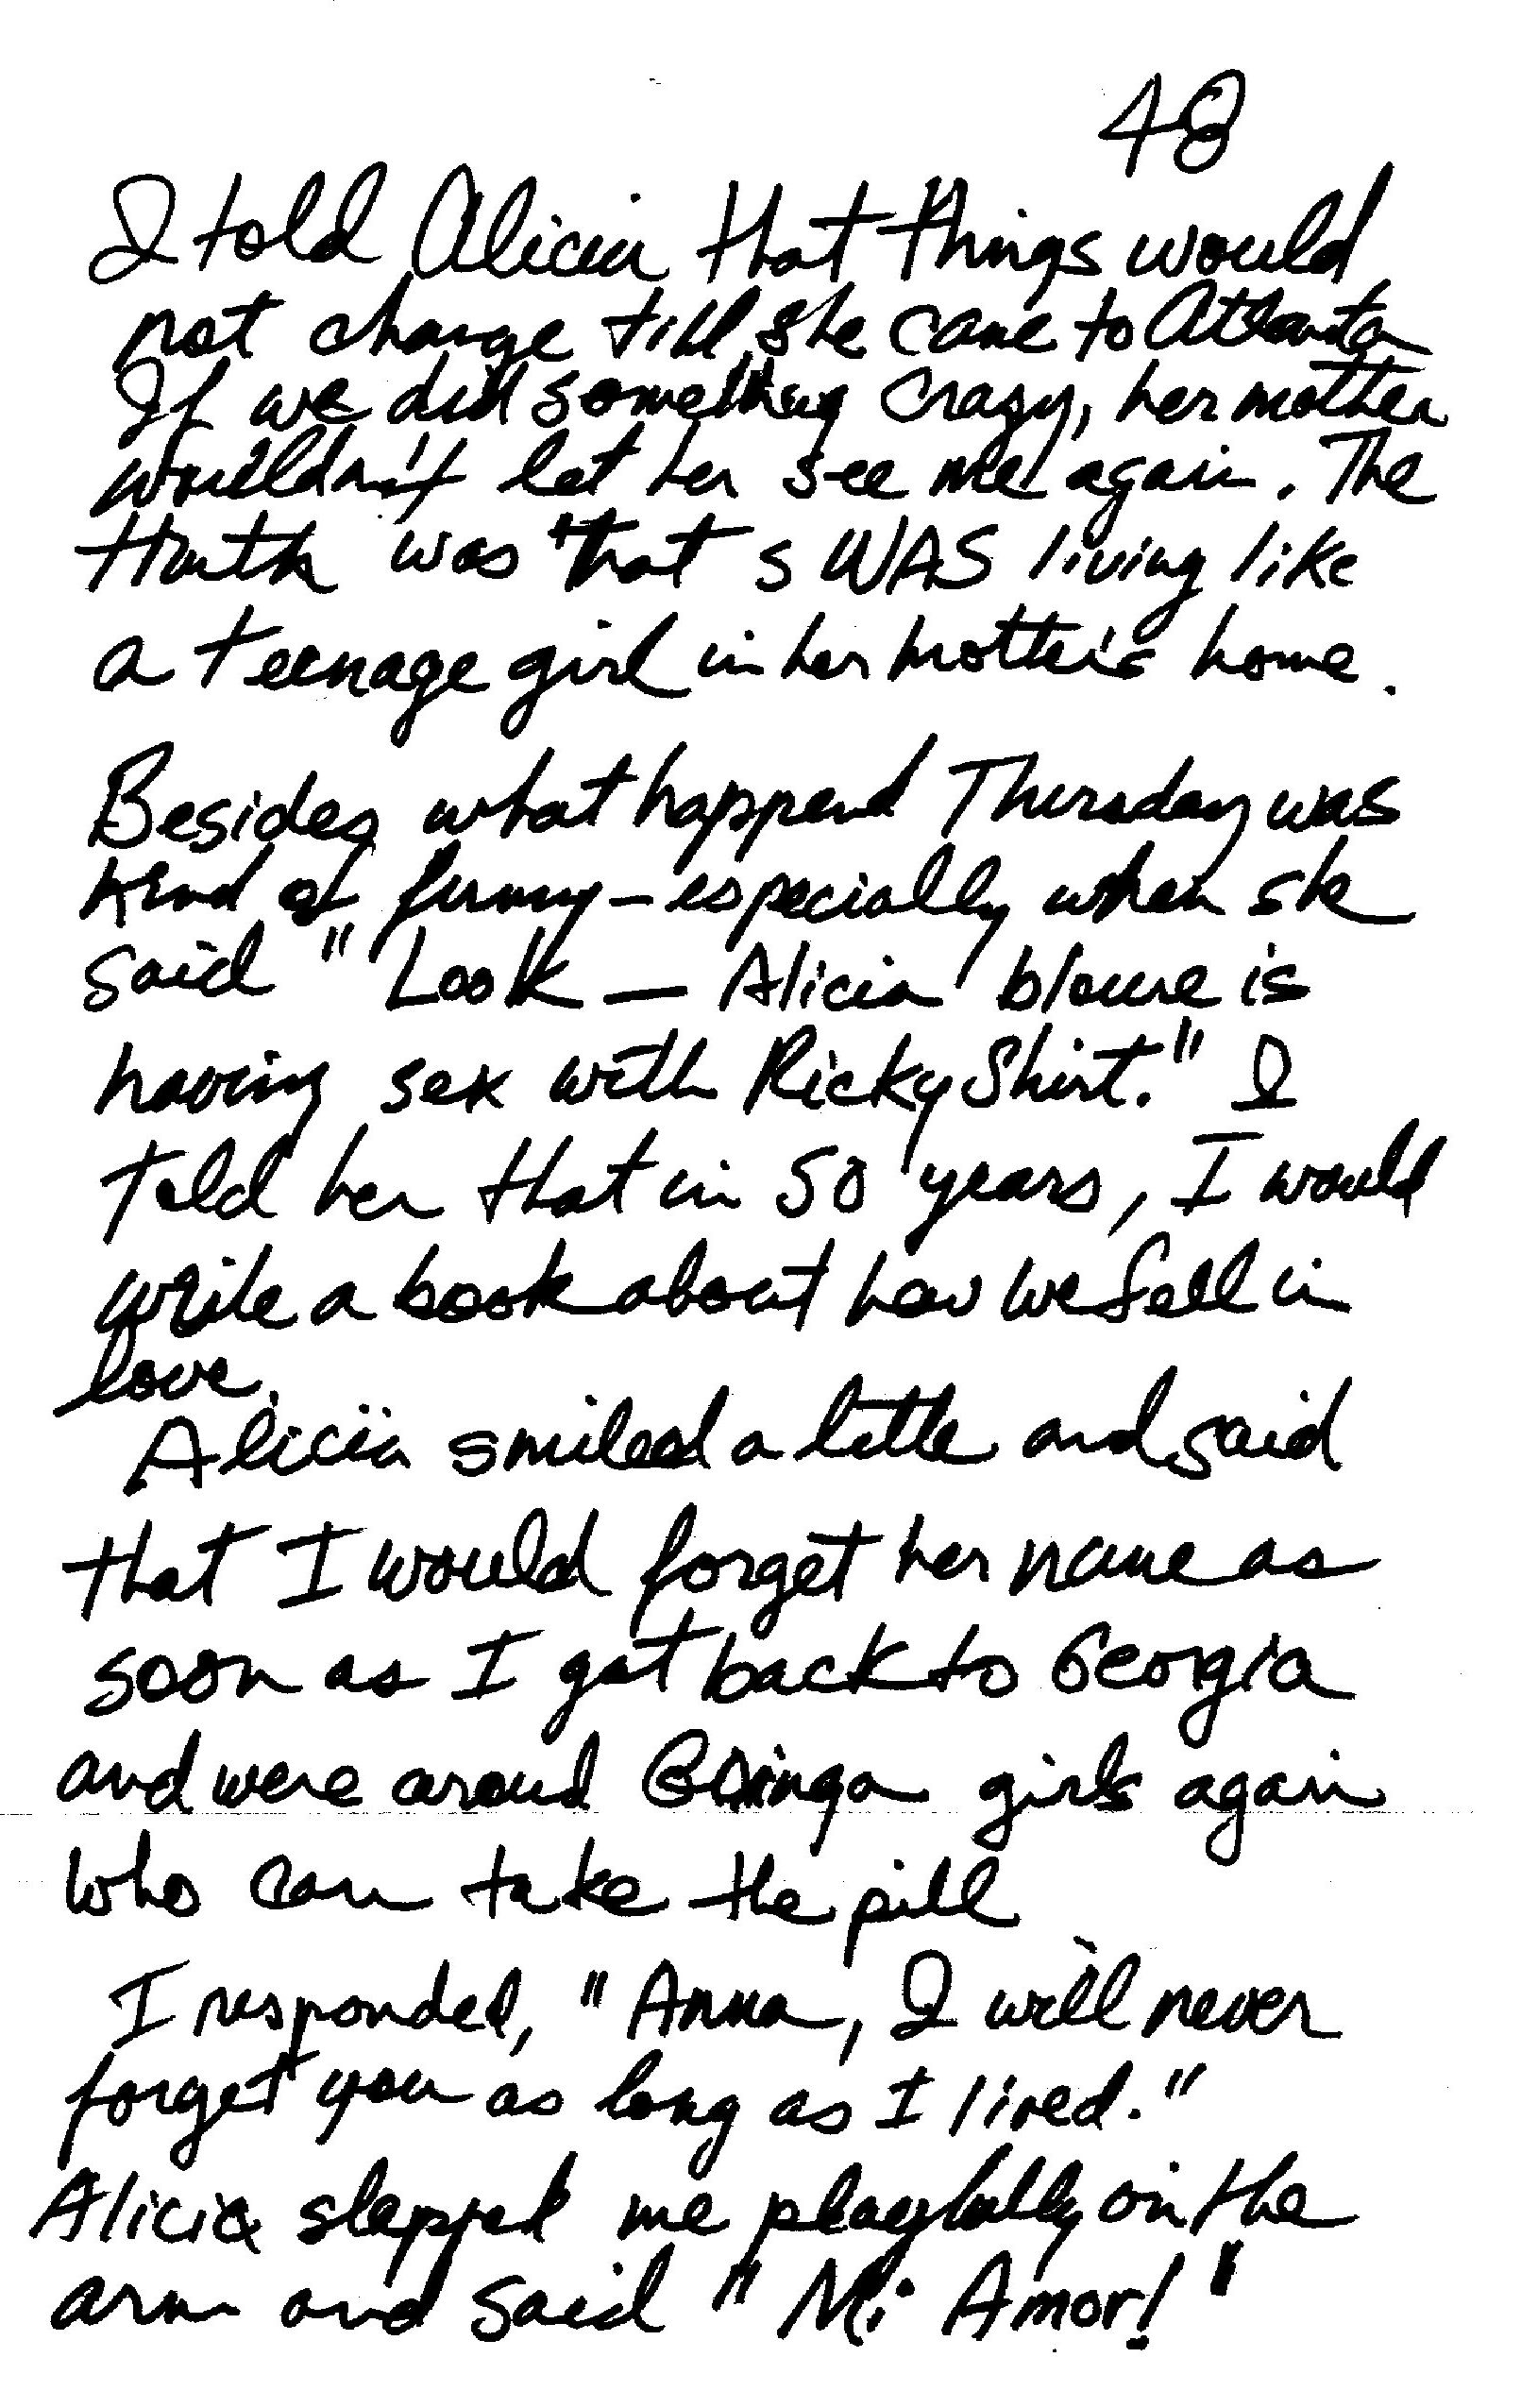 48
I told Alicia that things would
not change till she came to Atlanta
If we did something crazy, her mother
wouldn't let her see me again. The
truth was that s WAS living like
a teenage girl in her mother's home.
Besides what happend Thursday was
kind of funny - especially when she
said " Look — Alicia blouse is
having sex with Ricky Shirt." I
told her that in 50 years, I would
write a book about how we fell in
love.
Alicia smiled a little and said
that I would forget her name as
soon as I got back to Georgia
and were around Gringa girls again
who can take the pill
I responded, "Anna, I will never
forget you as long as I lived."
Alicia slapped me playfully on the
arm and said "Mi Amor!"